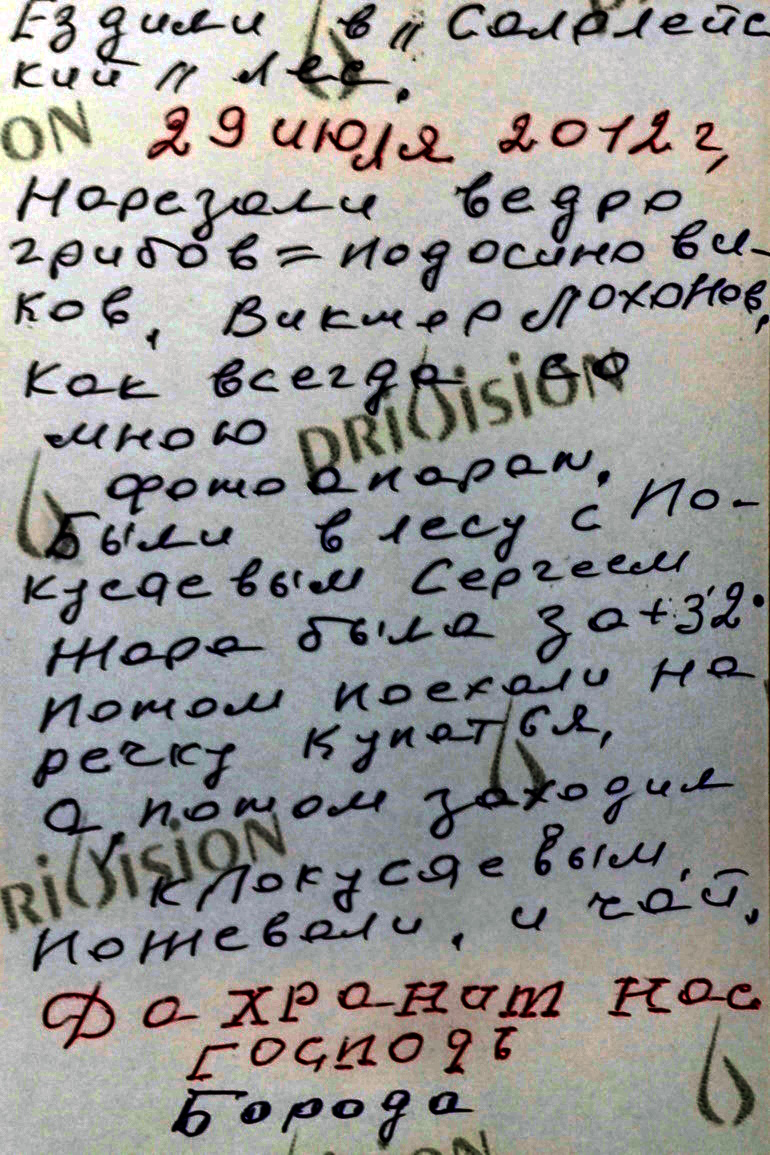 Ездили в "Салалейс
кий" лес.
29 июля 2012 г,
Нарезали ведро
грибов = подосинови-
ков, Виктор Лохонов,
Как всегда со
мною
DRiVisiON
фотоапарат,
Были в лесу с По-
кусаевым Сергеем
Жара была за +32°
потом поехали на
речку купатся,
А, потом заходил
к Покусяевым,
Пожевали, и чай,
Да хранит нас
Господь
Борода